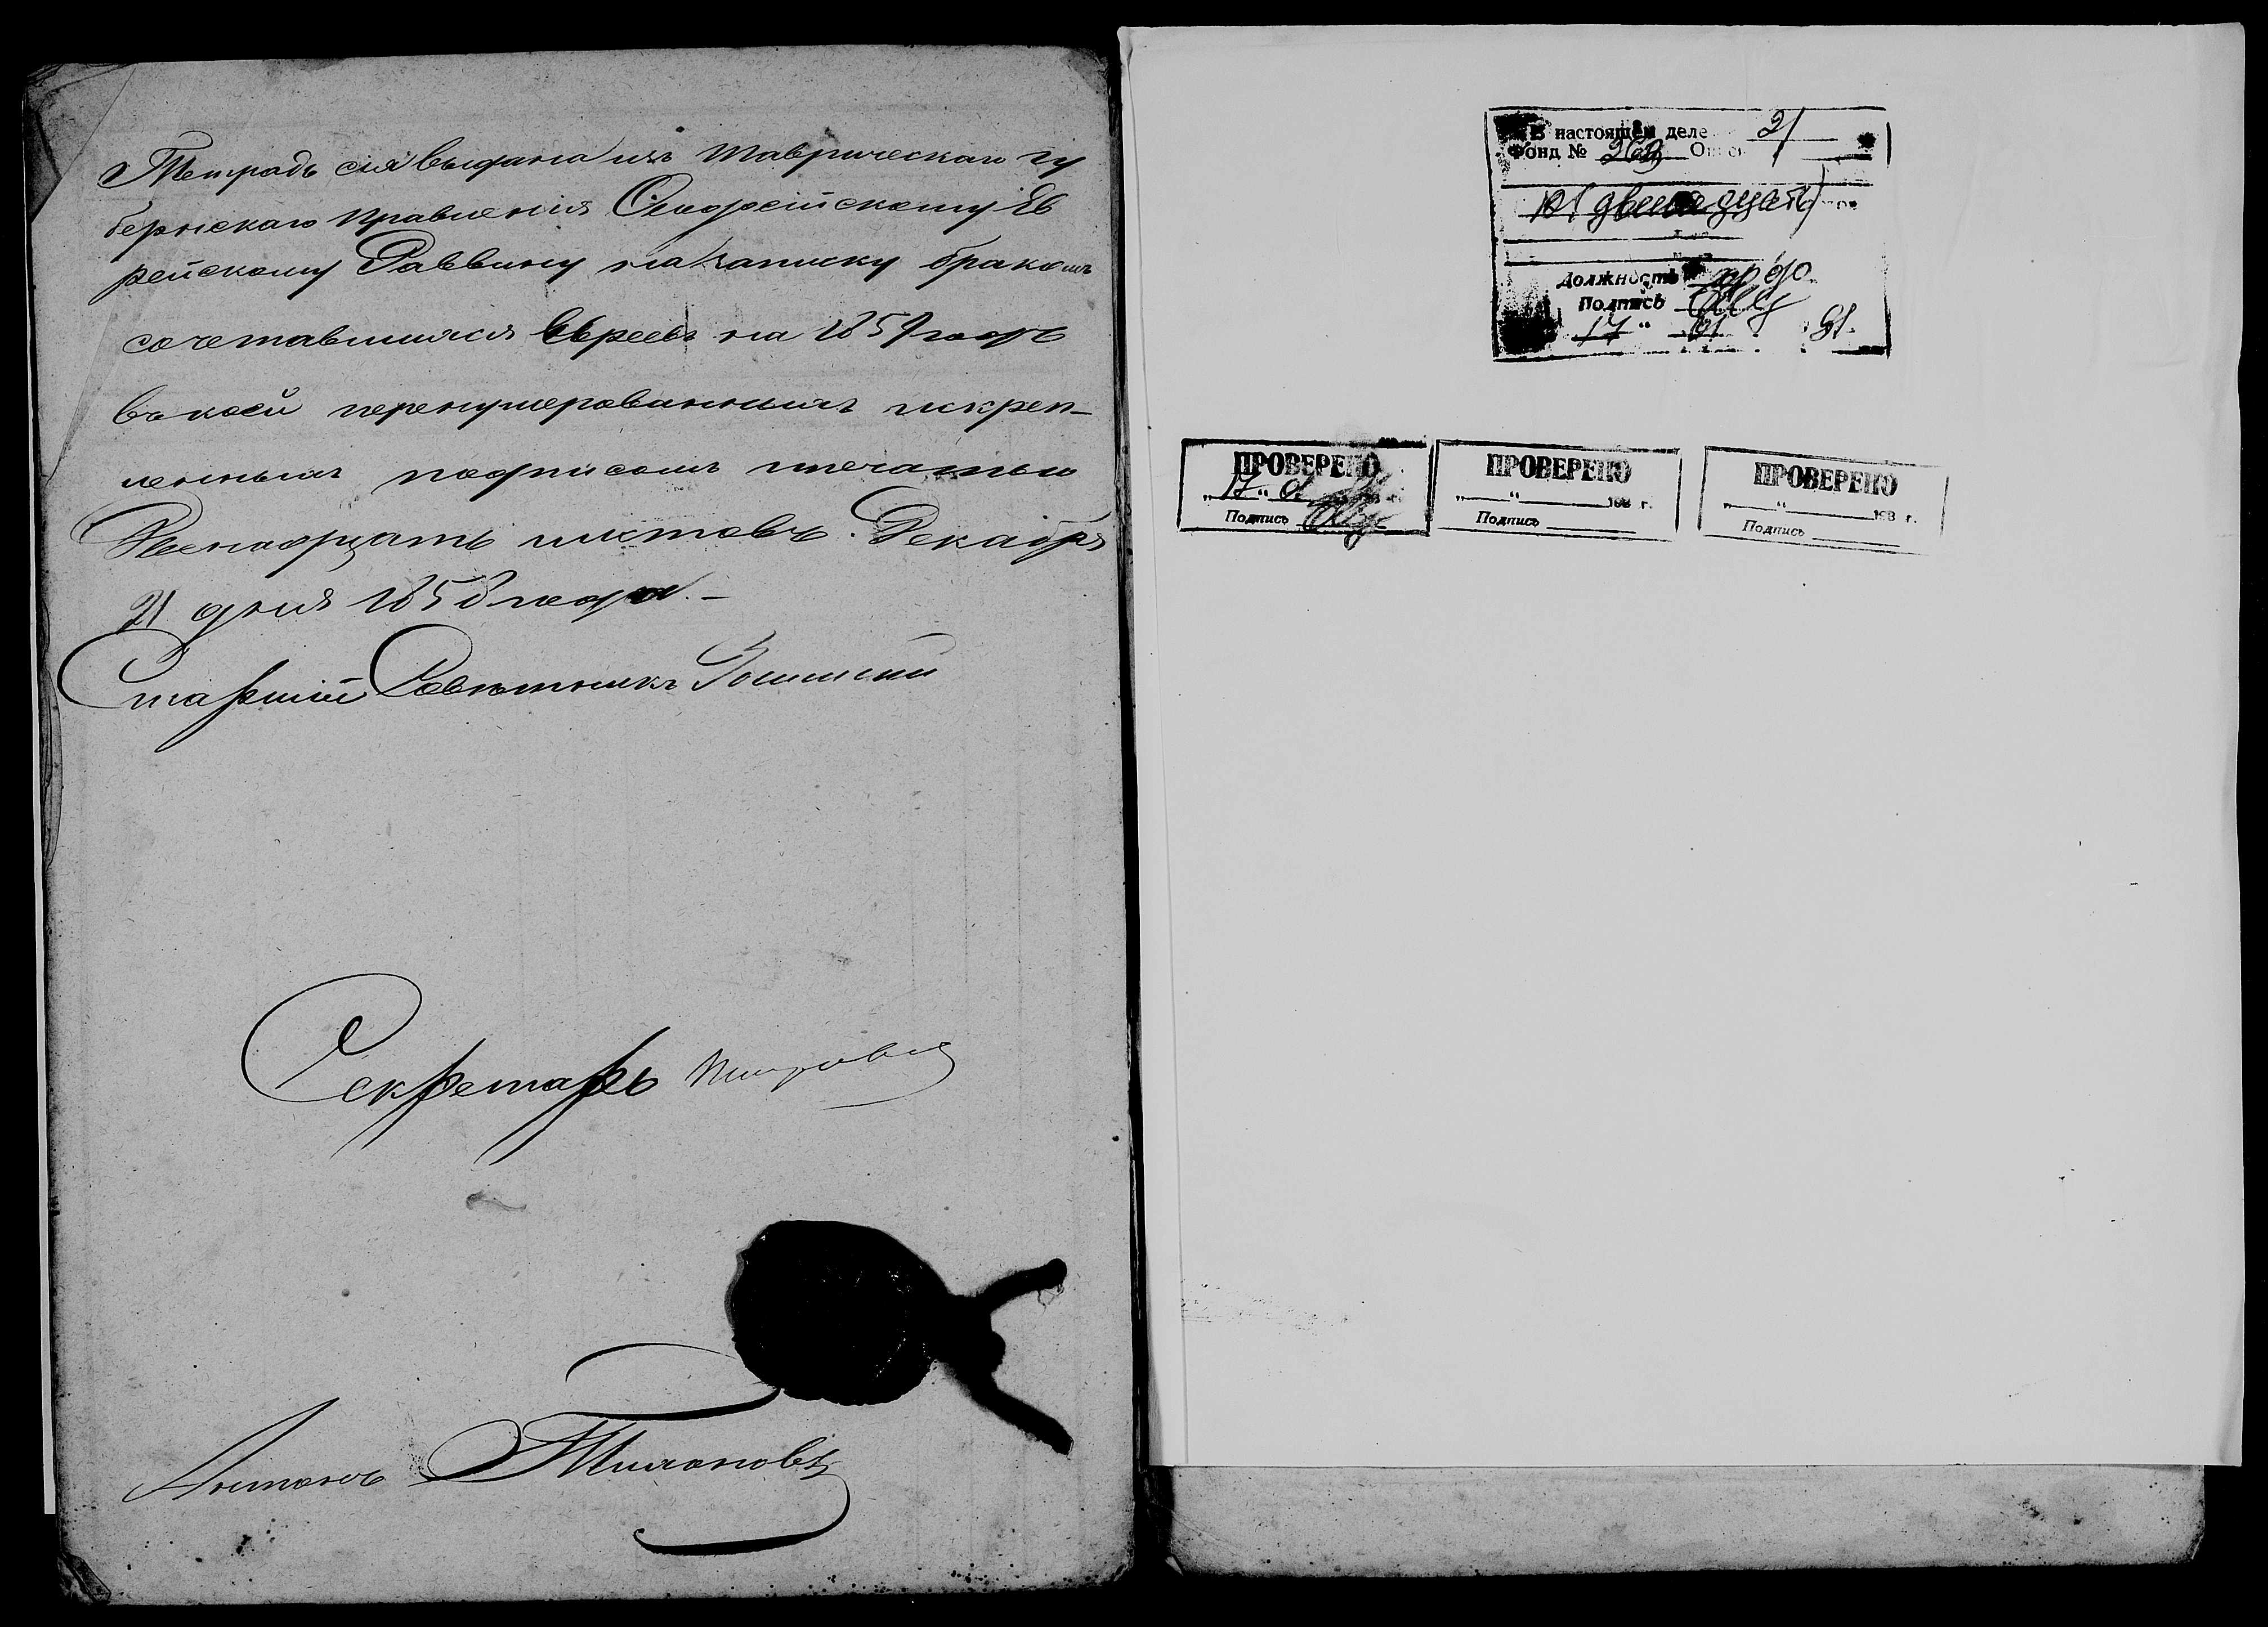 Тетрадь сія выдана изъ Таврическаго гу
бернскаго Правленія Ѳеодосійскому Ев
рейскому Раввину на записку бракомъ
сочетавшихся Евреевъ на 1859 годъ
въ коей перенумерованныхъ и скреп-
ленныхъ подписомъ и печатью
Двенадцать листовъ. Декабря
21 дня 1858 года.-
Старшій Советникъ
Секретарь
Антонъ
В настоящем деле 21
Фонд № 269
12 (двенадцать)
Должность
Подпись
17 " 01 91.
ПРОВЕРЕНО
„17"
Подпись
ПРОВЕРЕНО
„ " 198 г.
Подпись
ПРОВЕРЕНО
„ " 198 г.
Подпись